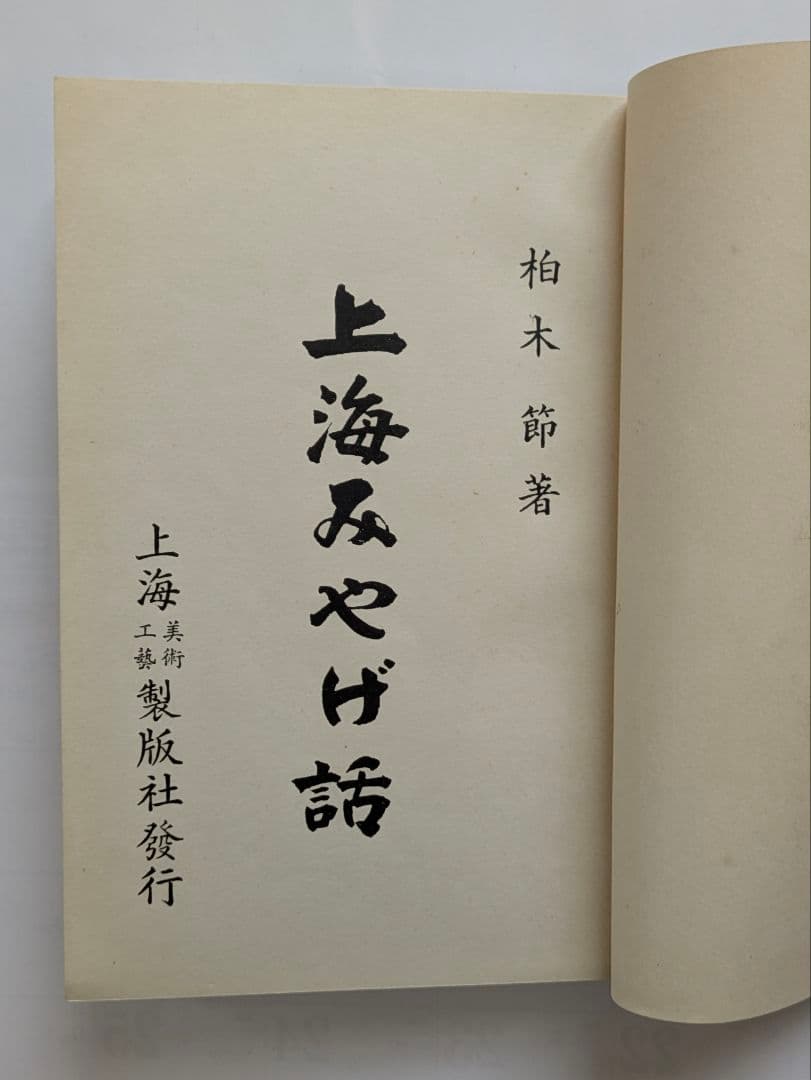 柏木節著
上海みやげ話
上海美術工藝製版社發行